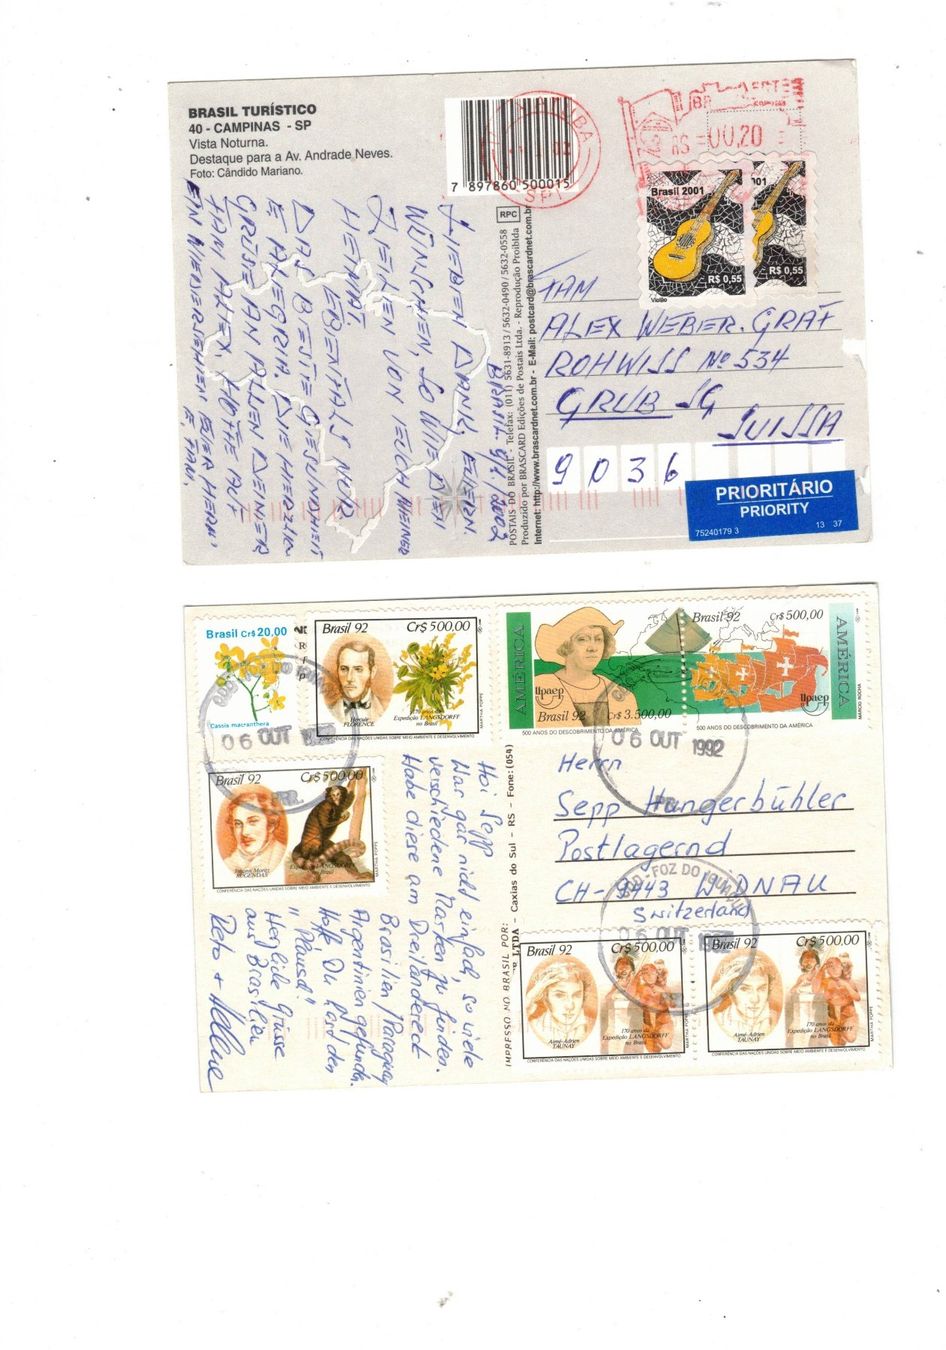 BRASIL TURÍSTICO
40 - CAMPINAS - SP
Vista Noturna.
Destaque para a Av. Andrade Neves.
Foto: Cândido Mariano.
7 897860 500015
SP
RS =00,20
Brasil 2001
R$ 0,55
Violão
001
R$ 0,55
BRASIL. 4/1 2002
LIEBEN DANK, EUERN
WÜNSCHEN, SO WIE D
ZEILEN VON EUCH MEINER
HEIMAT.
EBENFALLS NUR
DAS BESTE GESUNDHEIT
E ALEGRIA. DIE HERZLIN
GRÜSE AN ALLEN DEINER
FAM ALEX. HOFFE AUF
EIN WIEDERSEHEN
E FAM.
RPC
POSTAIS DO BRASIL - Telefax: (011) 5631-8913 / 5632-0490 / 5632-0558
Produzido por BRASCARD Edições de Postais Ltda. - Reprodução Proibida
Internet: http://www.brascardnet.com.br - E-Mail: postcard@brascardnet.com.br
FAM
ALEX WEBER. GRAF
ROHWISS No 534
GRUB SG
SUISSA
9036
PRIORITÁRIO
PRIORITY
75240179 3 13 37
Brasil Cr$ 20,00
Cassia macranthera
Brasil 92 Cr$ 500,00
Hercule
FLORENCE
170 anos da
Expedição LANGSDORFF
no Brasil
MARTHA POPPE
CONFERÊNCIA DAS NAÇÕES UNIDAS SOBRE MEIO AMBIENTE E DESENVOLVIMENTO
06 OUT 1992
PR
Brasil 92 Cr$ 500,00
Johann Moritz
RUGENDAS
Expedição LANGSDORFF
Brasil
MARTHA POPPE
CONFERÊNCIA DAS NAÇÕES UNIDAS SOBRE MEIO AMBIENTE E DESENVOLVIMENTO
AMÉRICA
Upaep
Brasil 92 Cr$ 3.500,00
500 ANOS DO DESCOBRIMENTO DA AMÉRICA
Brasil 92 Cr$ 500,00
AMÉRICA
Upaep
500 ANOS DO DESCOBRIMENTO DA AMÉRICA
MÁRCIO ROCHA
06 OUT 1992
Hoi Sepp
War gar nicht einfach, so viele
verschiedene Marken zu finden.
Habe diese am Dreiländereck
Brasilien / Paraguay
Argentinien gefunden.
Hoffe Du hast den
"Plausch".
Herzliche Grüsse
aus Brasilien
Reto + Helene
IMPRESSO NO BRASIL POR:
LTDA - Caxias do Sul - RS - Fone: (054)
Herrn
Sepp Hungerbühler
Postlagernd
CH-9443 WIDNAU
Switzerland
FOZ DO IGUAÇU
06 OUT 1992
Brasil 92 Cr$ 500,00
Aimé-Adrien
TAUNAY
170 anos da
Expedição LANGSDORFF
no Brasil
MARTHA POPPE
CONFERÊNCIA DAS NAÇÕES UNIDAS SOBRE MEIO AMBIENTE E DESENVOLVIMENTO
Brasil 92 Cr$ 500,00
Aimé-Adrien
TAUNAY
170 anos da
Expedição LANGSDORFF
no Brasil
MARTHA POPPE
CONFERÊNCIA DAS NAÇÕES UNIDAS SOBRE MEIO AMBIENTE E DESENVOLVIMENTO